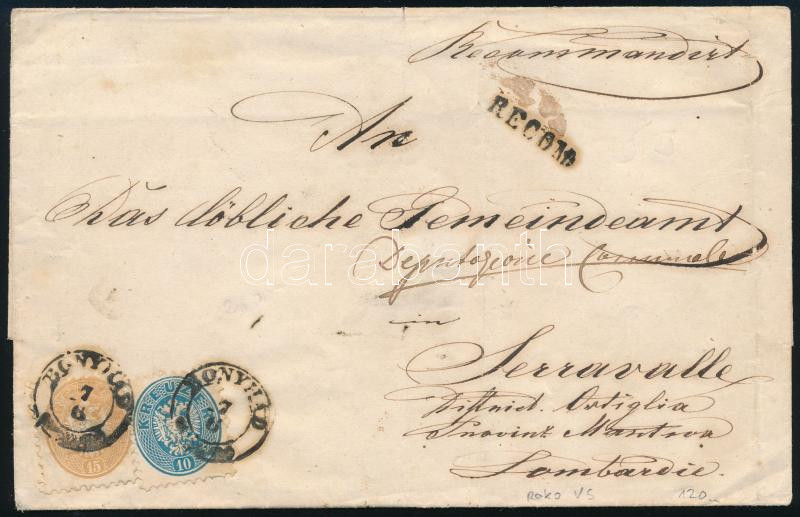 Recommandirt
RECOM
An
Das löbliche Gemeindeamt
Deputazione Comunale
in
Serravalle
District Ostiglia
Provinz Mantova
Lombardie.
BONYHÁD
7
6
15
BONYHÁD
7
10
darabanth
120